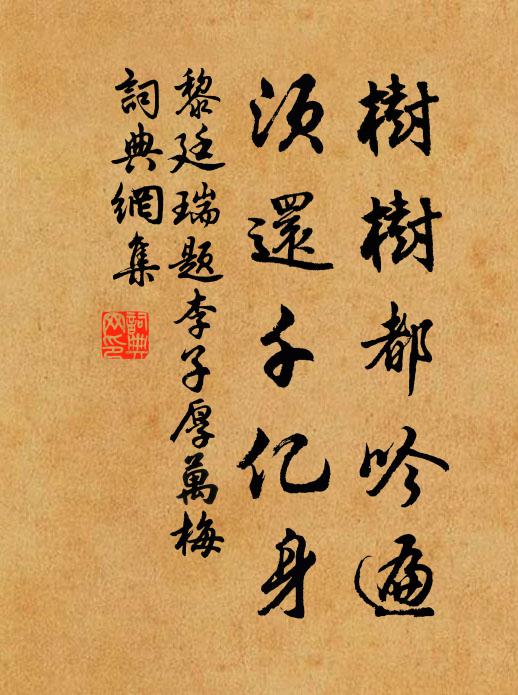 樹樹都吟遍
須還千亿身
黎廷瑞題李子厚萬梅
詞典網集
詞典網印